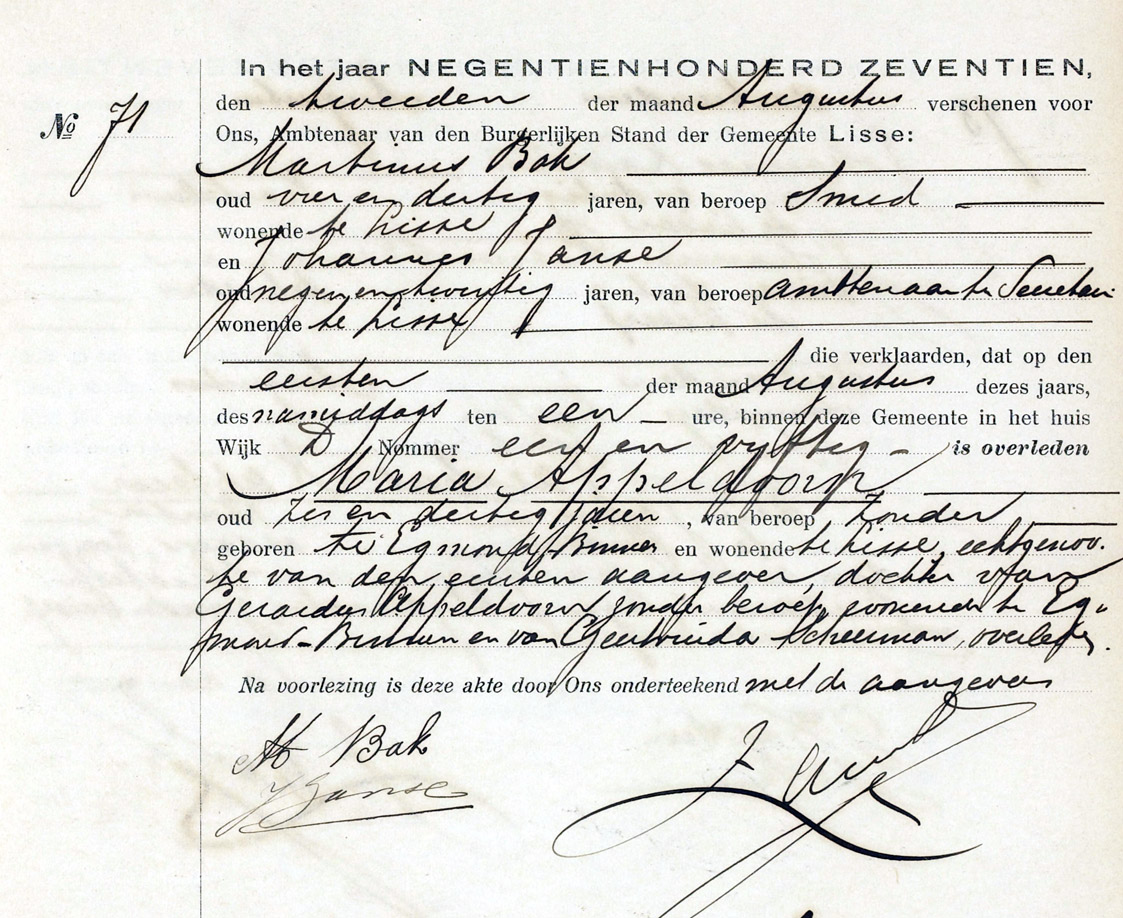 In het jaar NEGENTIENHONDERD ZEVENTIEN,
den tweeden der maand Augustus verschenen voor
No 71
Ons, Ambtenaar van den Burgerlijken Stand der Gemeente Lisse:
Martinus Bak
oud vier en dertig jaren, van beroep Smid
wonende te Lisse
en Johannes Janse
oud negen en twintig jaren, van beroep ambtenaar ter Secretari
wonende te Lisse
die verklaarden, dat op den
eersten der maand Augustus dezes jaars,
des namiddags ten een ure, binnen deze Gemeente in het huis
Wijk D Nommer een en vijftig is overleden
Maria Appeldoorn
oud zes en dertig jaren, van beroep Zonder
geboren te Egmond Binnen en wonende te Lisse, echtgenoo-
te van den eersten aangever, dochter van
Gerardus Appeldoorn zonder beroep, wonende te Eg-
mond-Binnen en van Geertruida Scheerman, overleden.
Na voorlezing is deze akte door Ons onderteekend met de aangevers
M Bak
J Janse